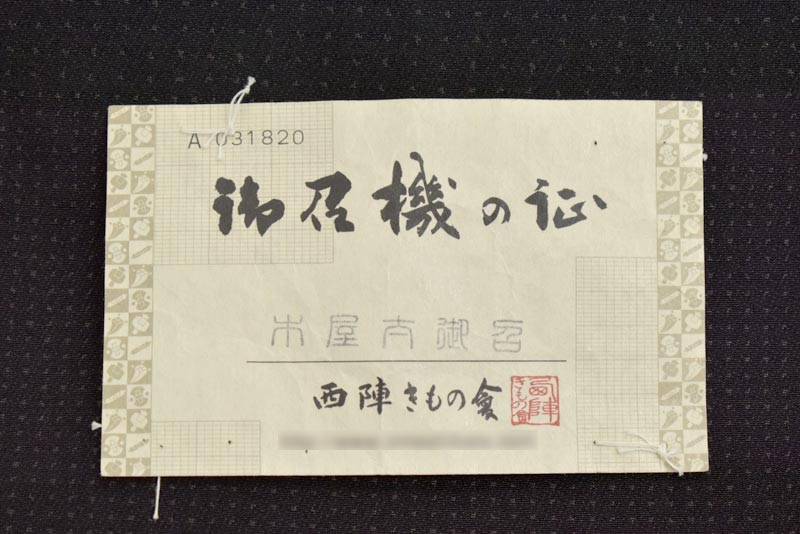 A 031820
御召機の証
木屋太御召
西陣きもの會
西陣きもの會